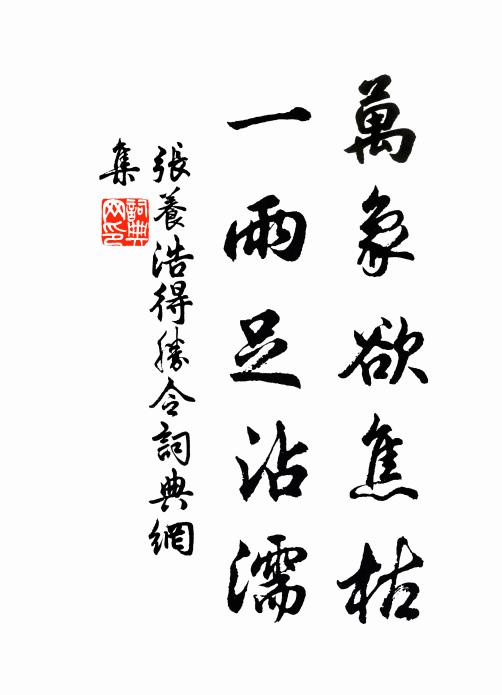 萬象欲焦枯
一雨足沾濡
張養浩得勝令詞典網
集
詞典
网印